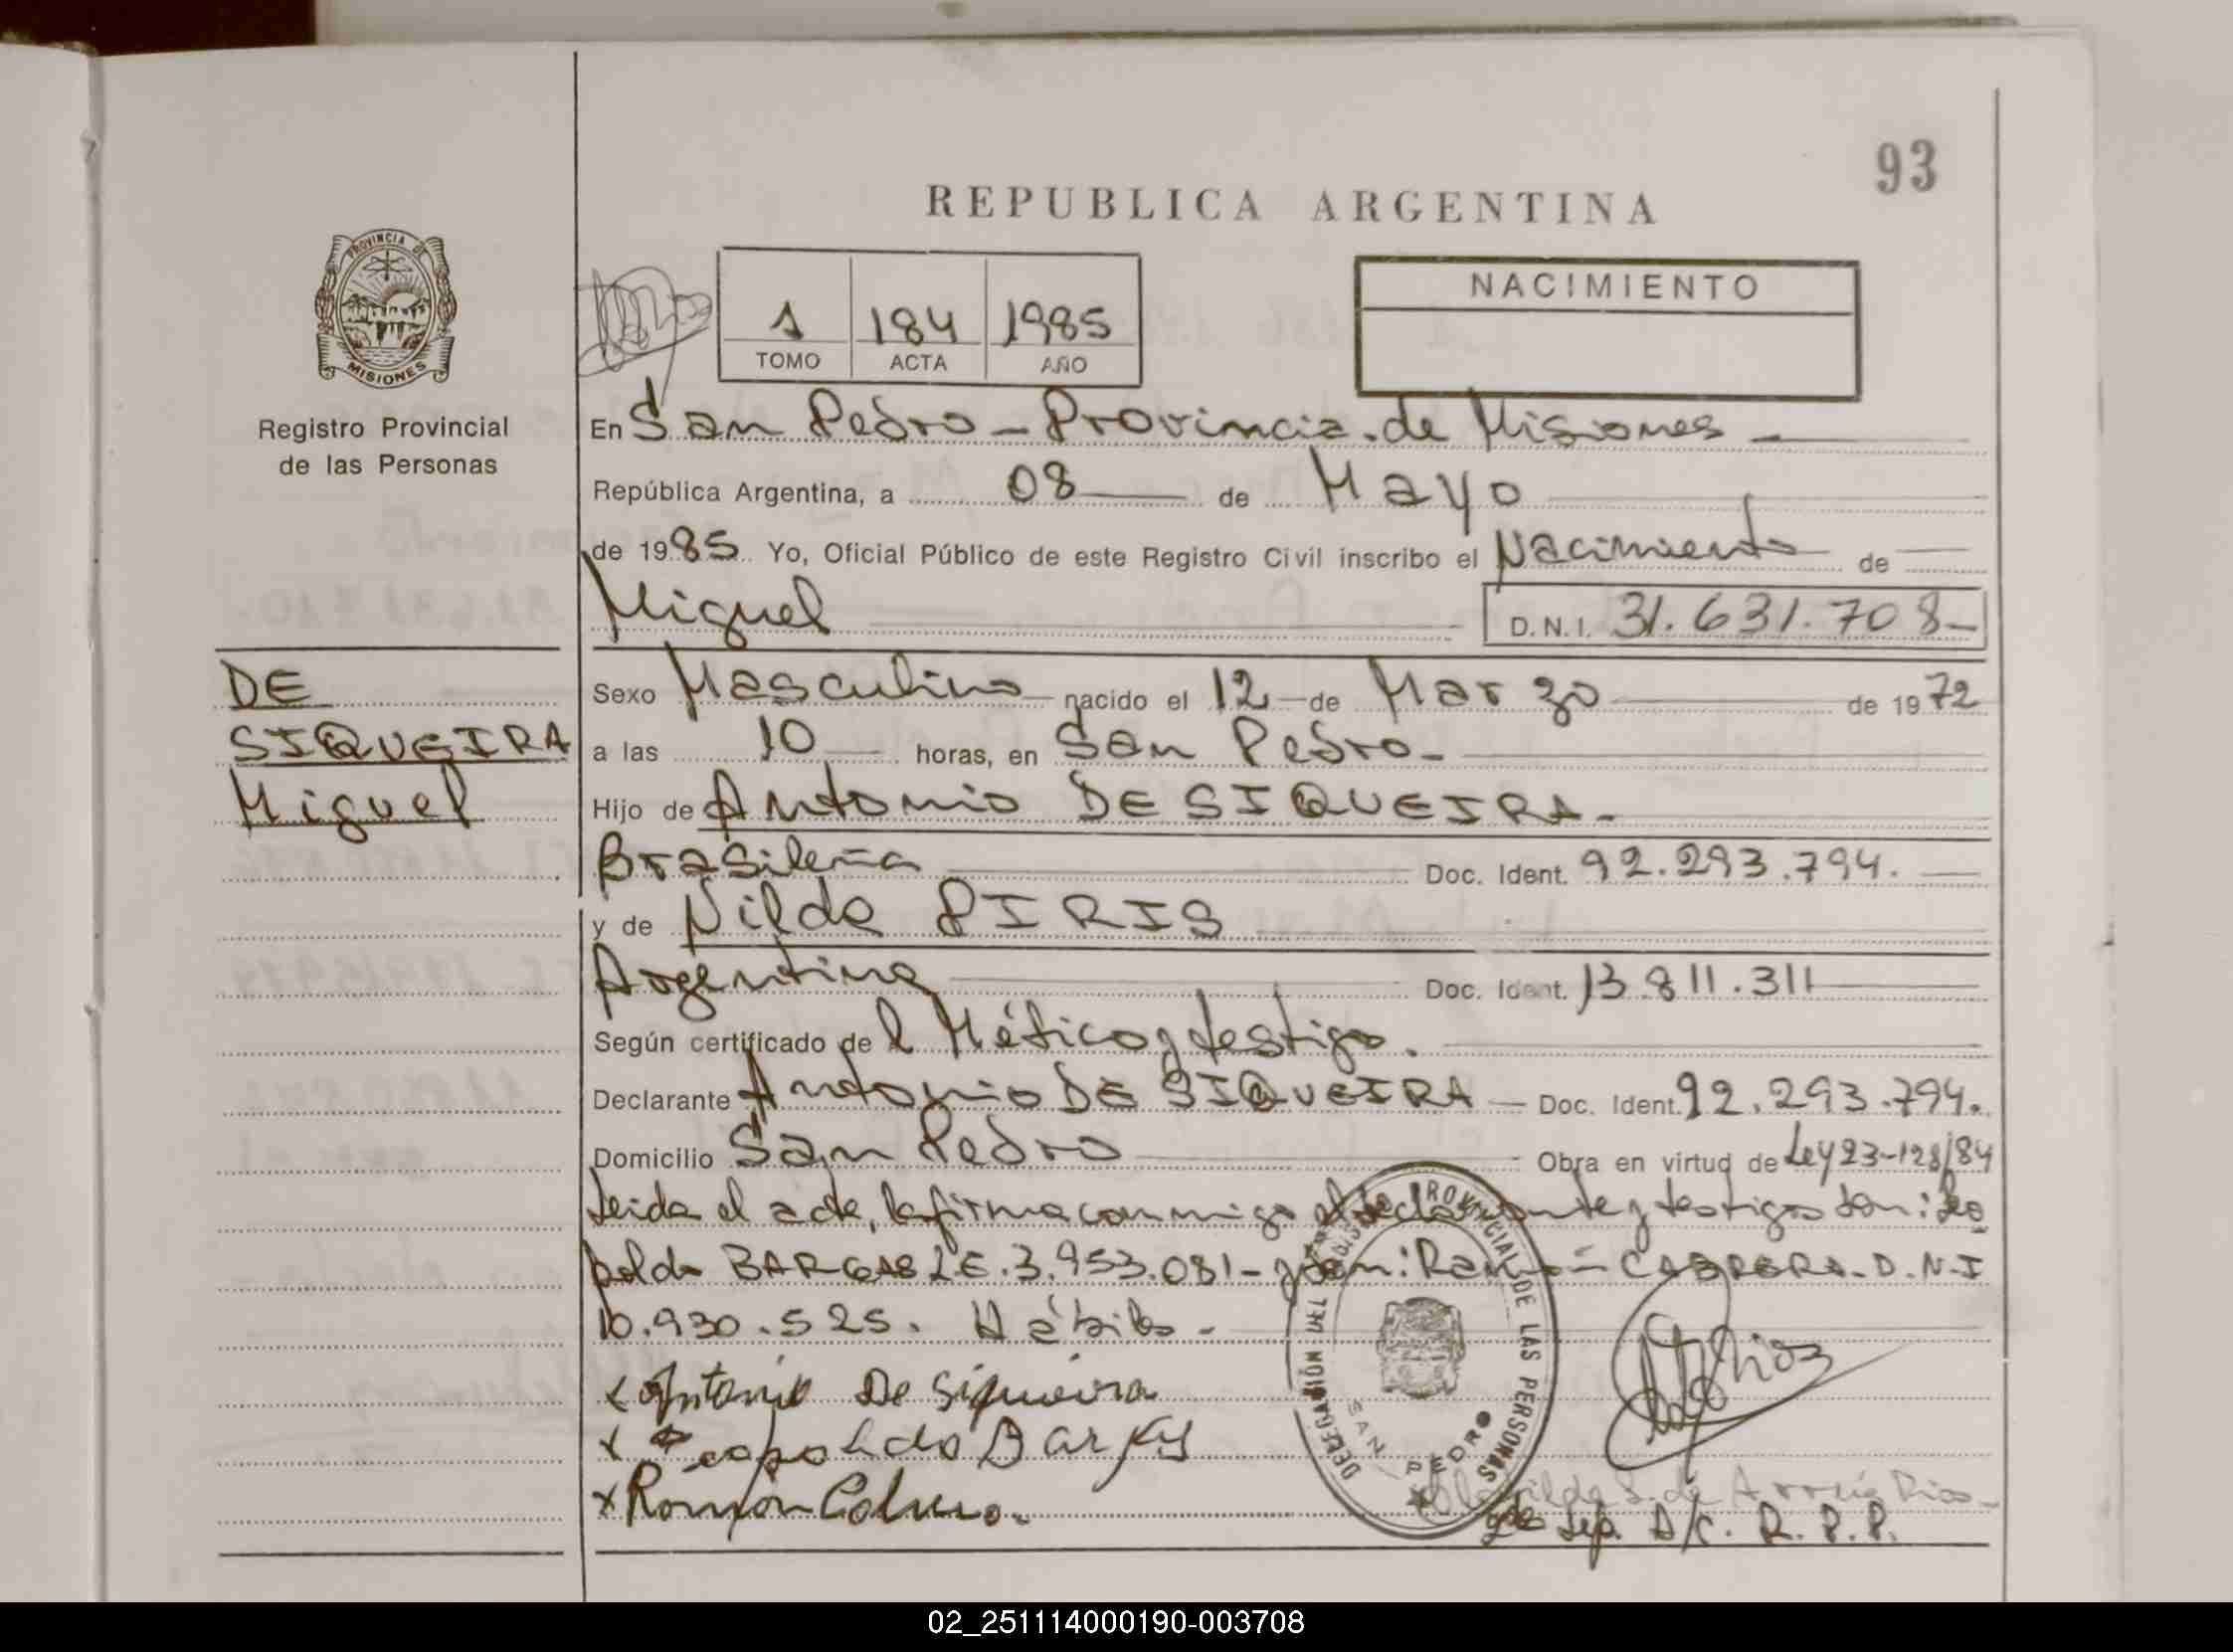 93
REPUBLICA ARGENTINA
PROVINCIA DE
MISIONES
Registro Provincial
de las Personas
1 184 1985
TOMO ACTA AÑO
NACIMIENTO
En San Pedro - Provincia de Misiones -
República Argentina, a 08 de Mayo
de 1985 Yo, Oficial Público de este Registro Civil inscribo el Nacimiento de
Miguel D.N.I. 31.631.708-
DE
SIQUEIRA
Miguel
Sexo Masculino nacido el 12 de Marzo de 1972
a las 10 horas, en San Pedro-
Hijo de Antonio DE SIQUEIRA-
Brasileña Doc. Ident. 92.293.794.
y de Nilda PIRIS
Argentina Doc. Ident. 13.811.311
Según certificado de l Médico y testigo.
Declarante Antonio DE SIQUEIRA - Doc. Ident. 92.293.794.
Domicilio San Pedro Obra en virtud de Ley 23-128/84
Leida el acta, la firma conmigo el declarante y testigos Don: Leo
poldo BARGAS L.E. 3.953.081- y Don: Ramón CABRERA- D.N.I
10.930.525. Hábiles-
x Antonio De Siqueira
x Leopoldo Bargas
x Ramon
DELEGACIÓN DEL REGISTRO PROVINCIAL DE LAS PERSONAS
SAN PEDRO
S. de Arrúa Rios-
A/C. R.P.P.
02_251114000190-003708